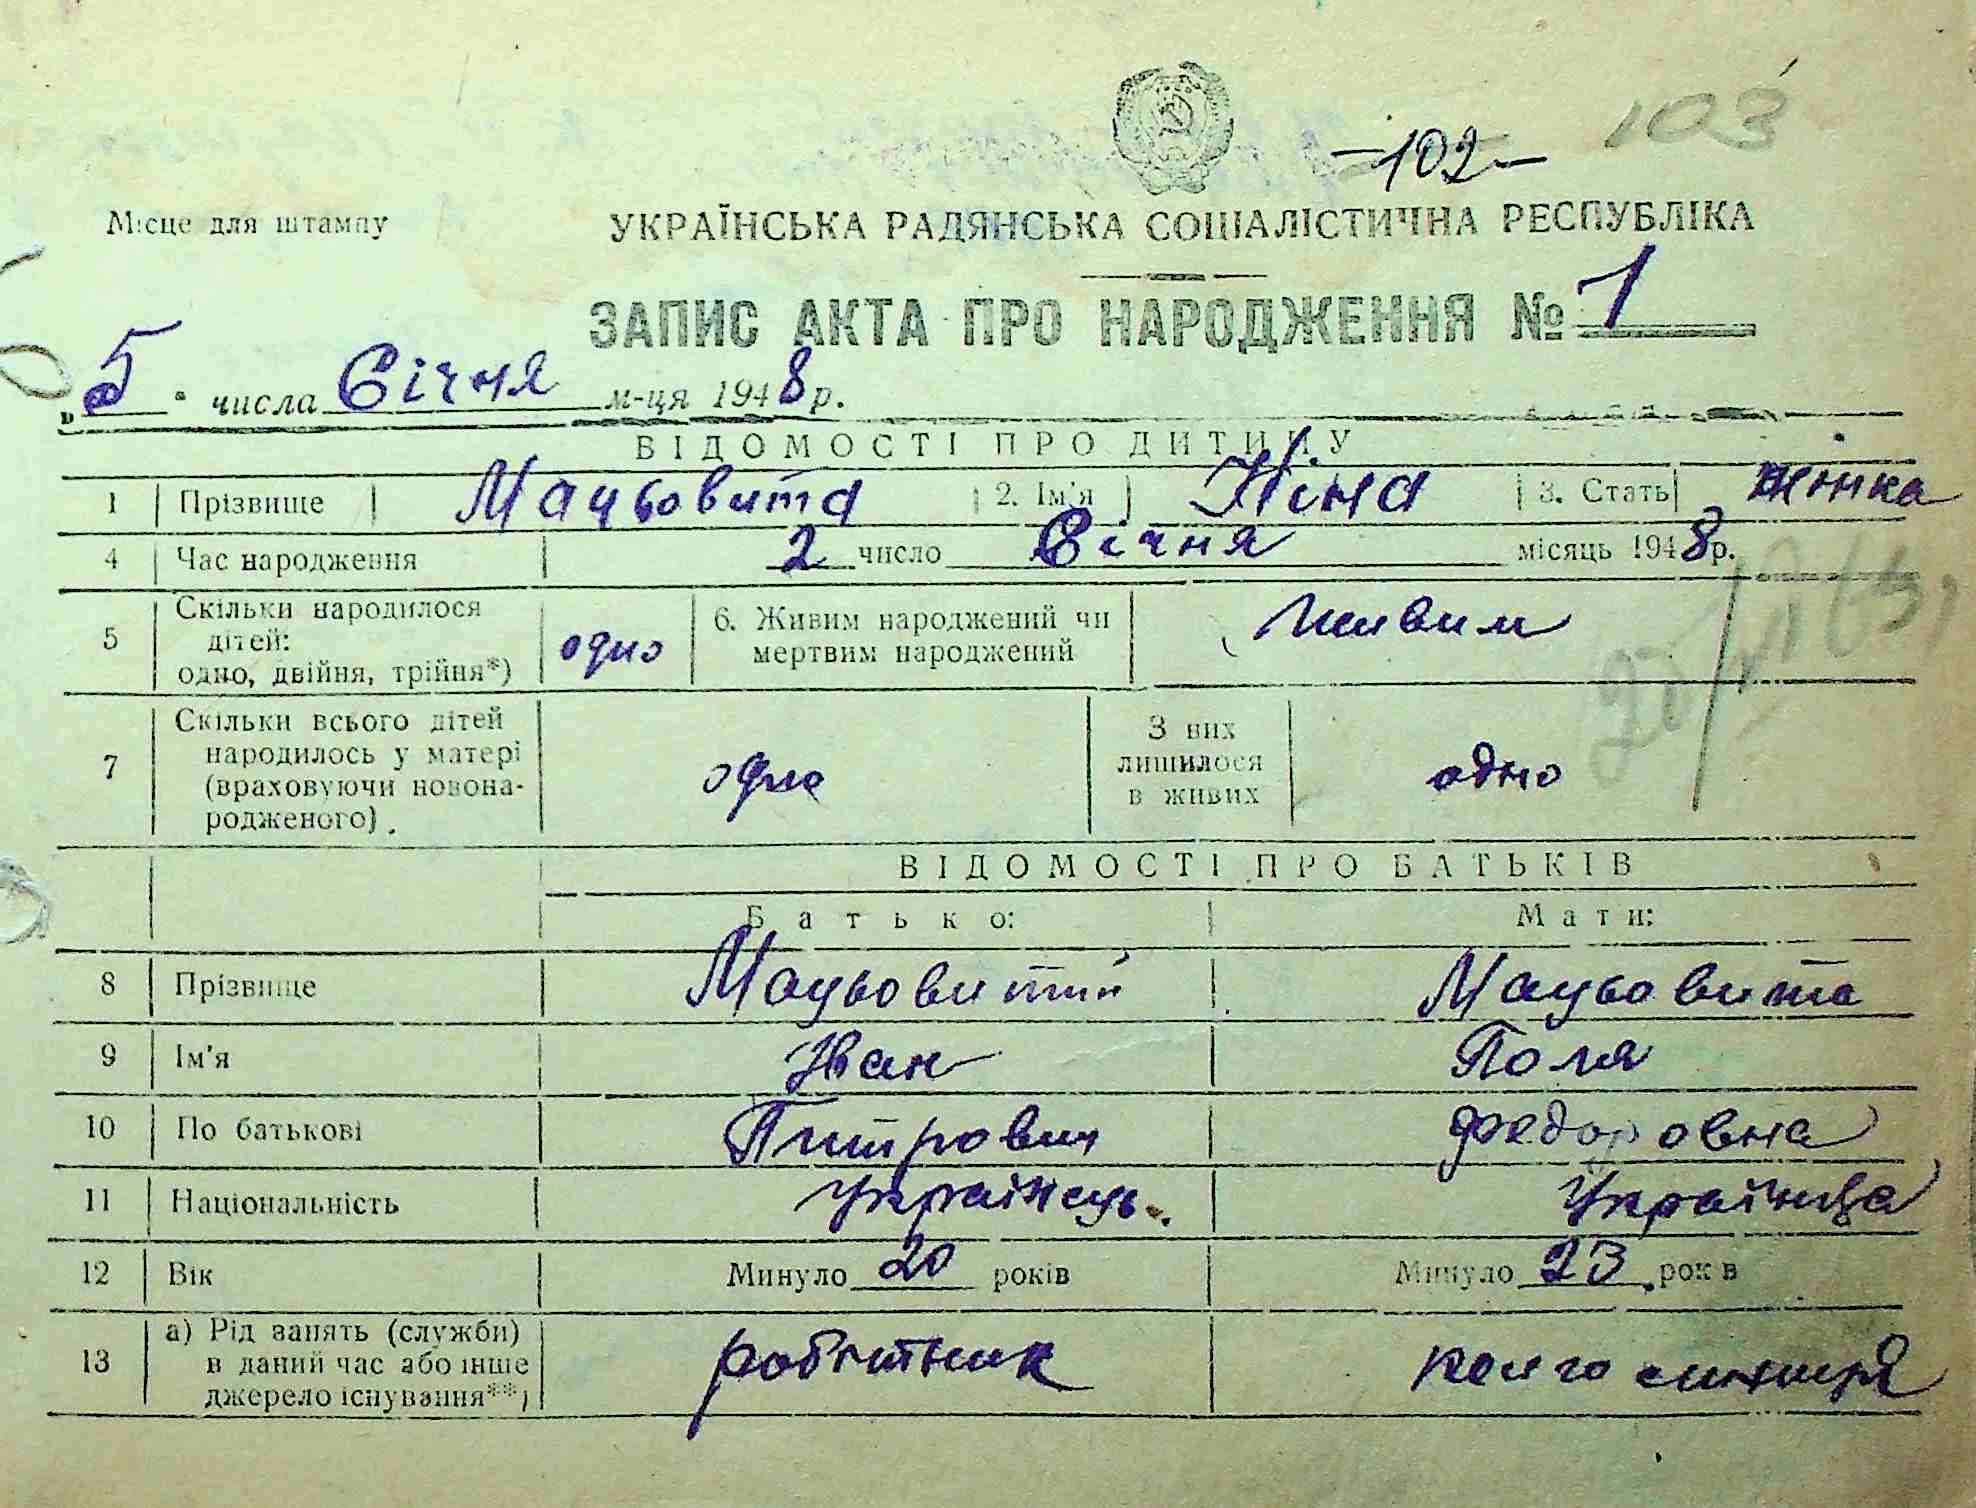 103
-102-
Місце для штампу
УКРАЇНСЬКА РАДЯНСЬКА СОЦІАЛІСТИЧНА РЕСПУБЛІКА
ЗАПИС АКТА ПРО НАРОДЖЕННЯ № 1
„5" числа Січня м-ця 1948 р.
ВІДОМОСТІ ПРО ДИТИНУ
1 Прізвище Мацьовита 2. Ім'я Ніна 3. Стать жінка
4 Час народження 2 число Січня місяць 1948 р.
5 Скільки народилося дітей: одно, двійня, трійня*) одно 6. Живим народжений чи мертвим народжений Живим
7 Скільки всього дітей народилось у матері (враховуючи новонародженого). одно З них лишилося в живих одно
ВІДОМОСТІ ПРО БАТЬКІВ
Батько: Мати:
8 Прізвище Мацьовитий Мацьовита
9 Ім'я Іван Поля
10 По батькові Питрович Федоровна
11 Національність Українець. Українка
12 Вік Минуло 20 років Минуло 23 рок в
13 а) Рід занять (служби) в даний час або інше джерело існування**) робітник